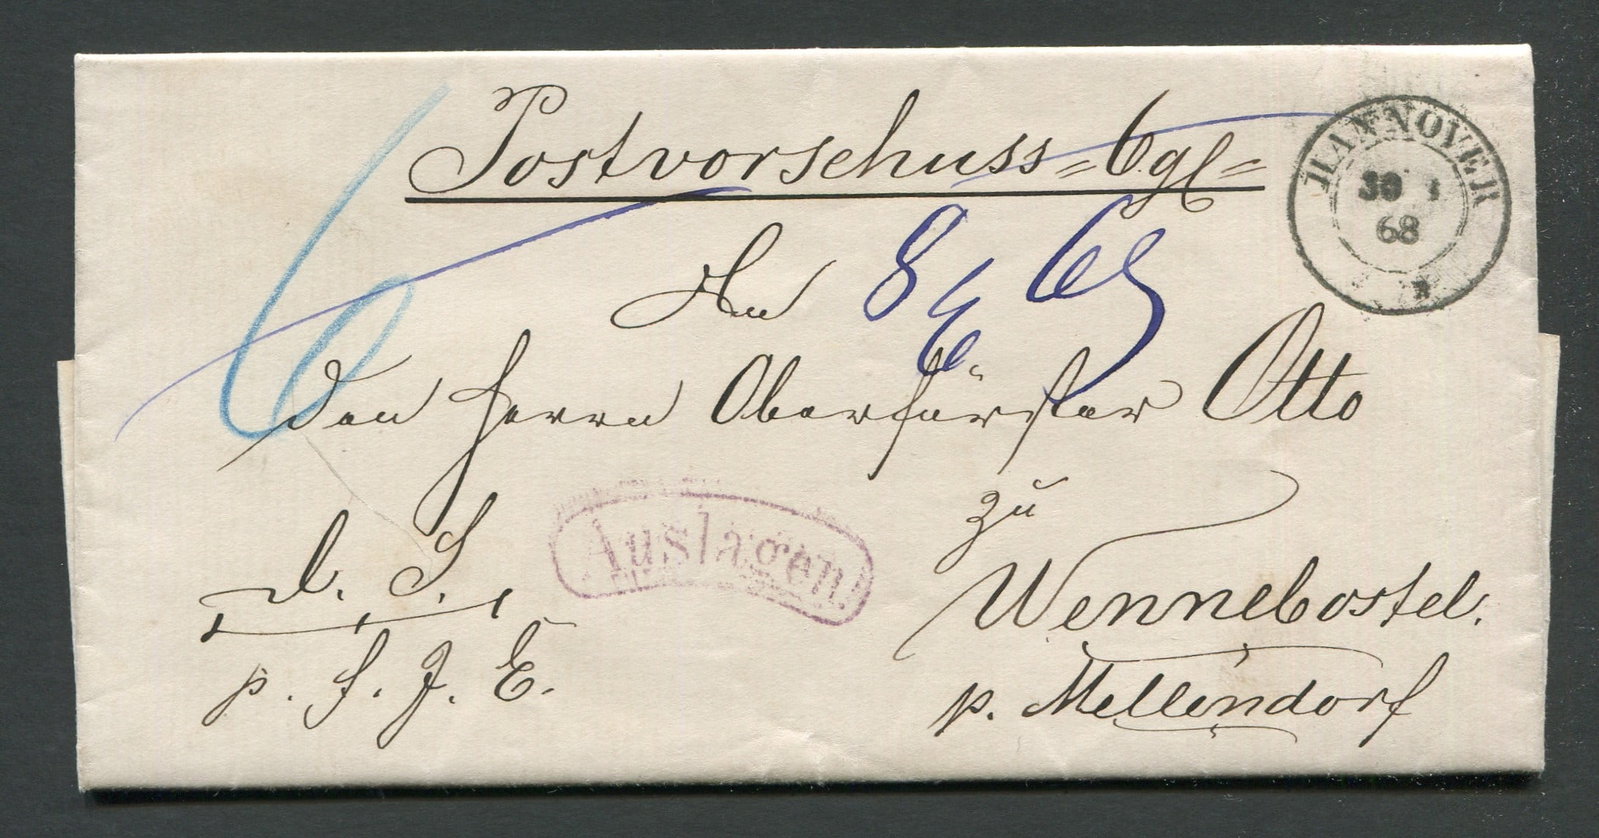 Postvorschuss = 6 gl =
HANNOVER
30 1
68
6
An
8 6
den Herrn Oberförster Otto
zu
Auslagen.
Wennebostel.
D. S.
p. Mellendorf
p. f. J. E.